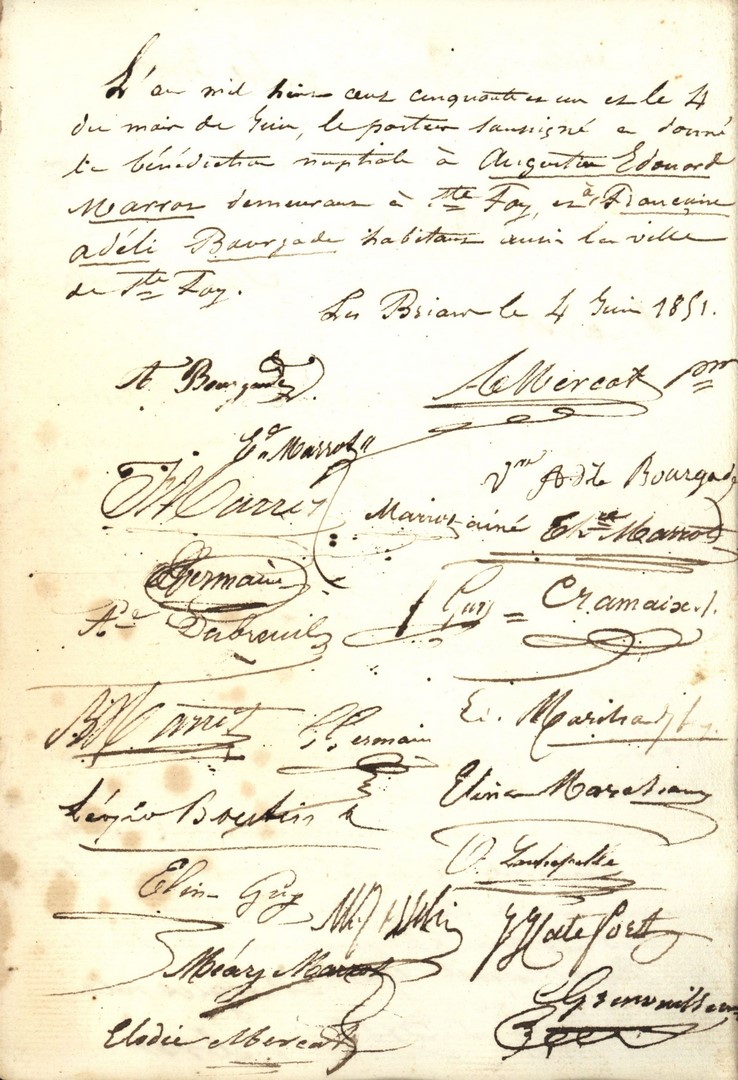 L'an mil huit cent cinquante et un et le 4
du mois de Juin, le pasteur soussigné a donné
la bénédiction nuptiale à Augustin Edouard
Marrot demeurant à Ste Foy, et à Françoise
adéli Bourgade habitant aussi la ville
de Ste Foy.
Les Briands le 4 Juin 1851.
A. Bourgade
A Mercat pr
Ed Marrot
Marrot
Vve Adle Bourgade
Marrot ainé
Marrot
Germain
Guy = Cramaix
Dubreuil
Marrot
Germain
El.
Boutin
Elina Marchand
O. Lachapelle
Elina Guy
J Hate
Méary Marrot
Elodie Mercat